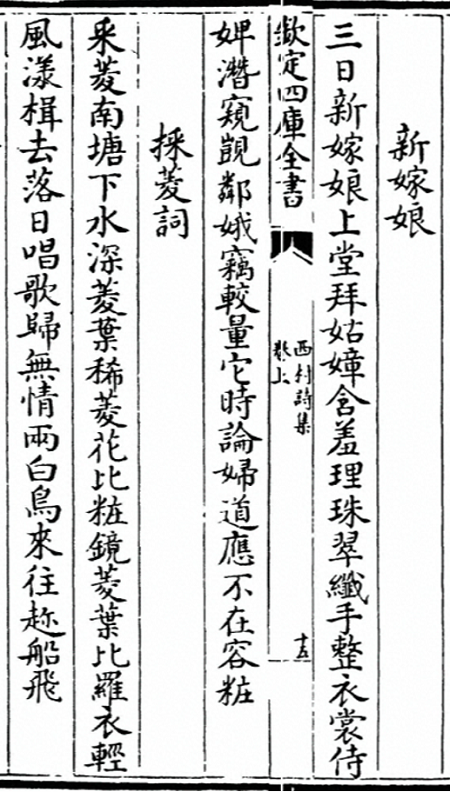 新嫁娘
三日新嫁娘上堂拜姑嫜含羞理珠翠纖手整衣裳侍
欽定四庫全書
西村詩集
卷上
十五
婢潛窺覰鄰娥竊較量它時論婦道應不在容粧
採菱詞
采菱南塘下水深菱葉稀菱花比粧鏡菱葉比羅衣輕
風漾楫去落日唱歌歸無情兩白鳥來往趂船飛